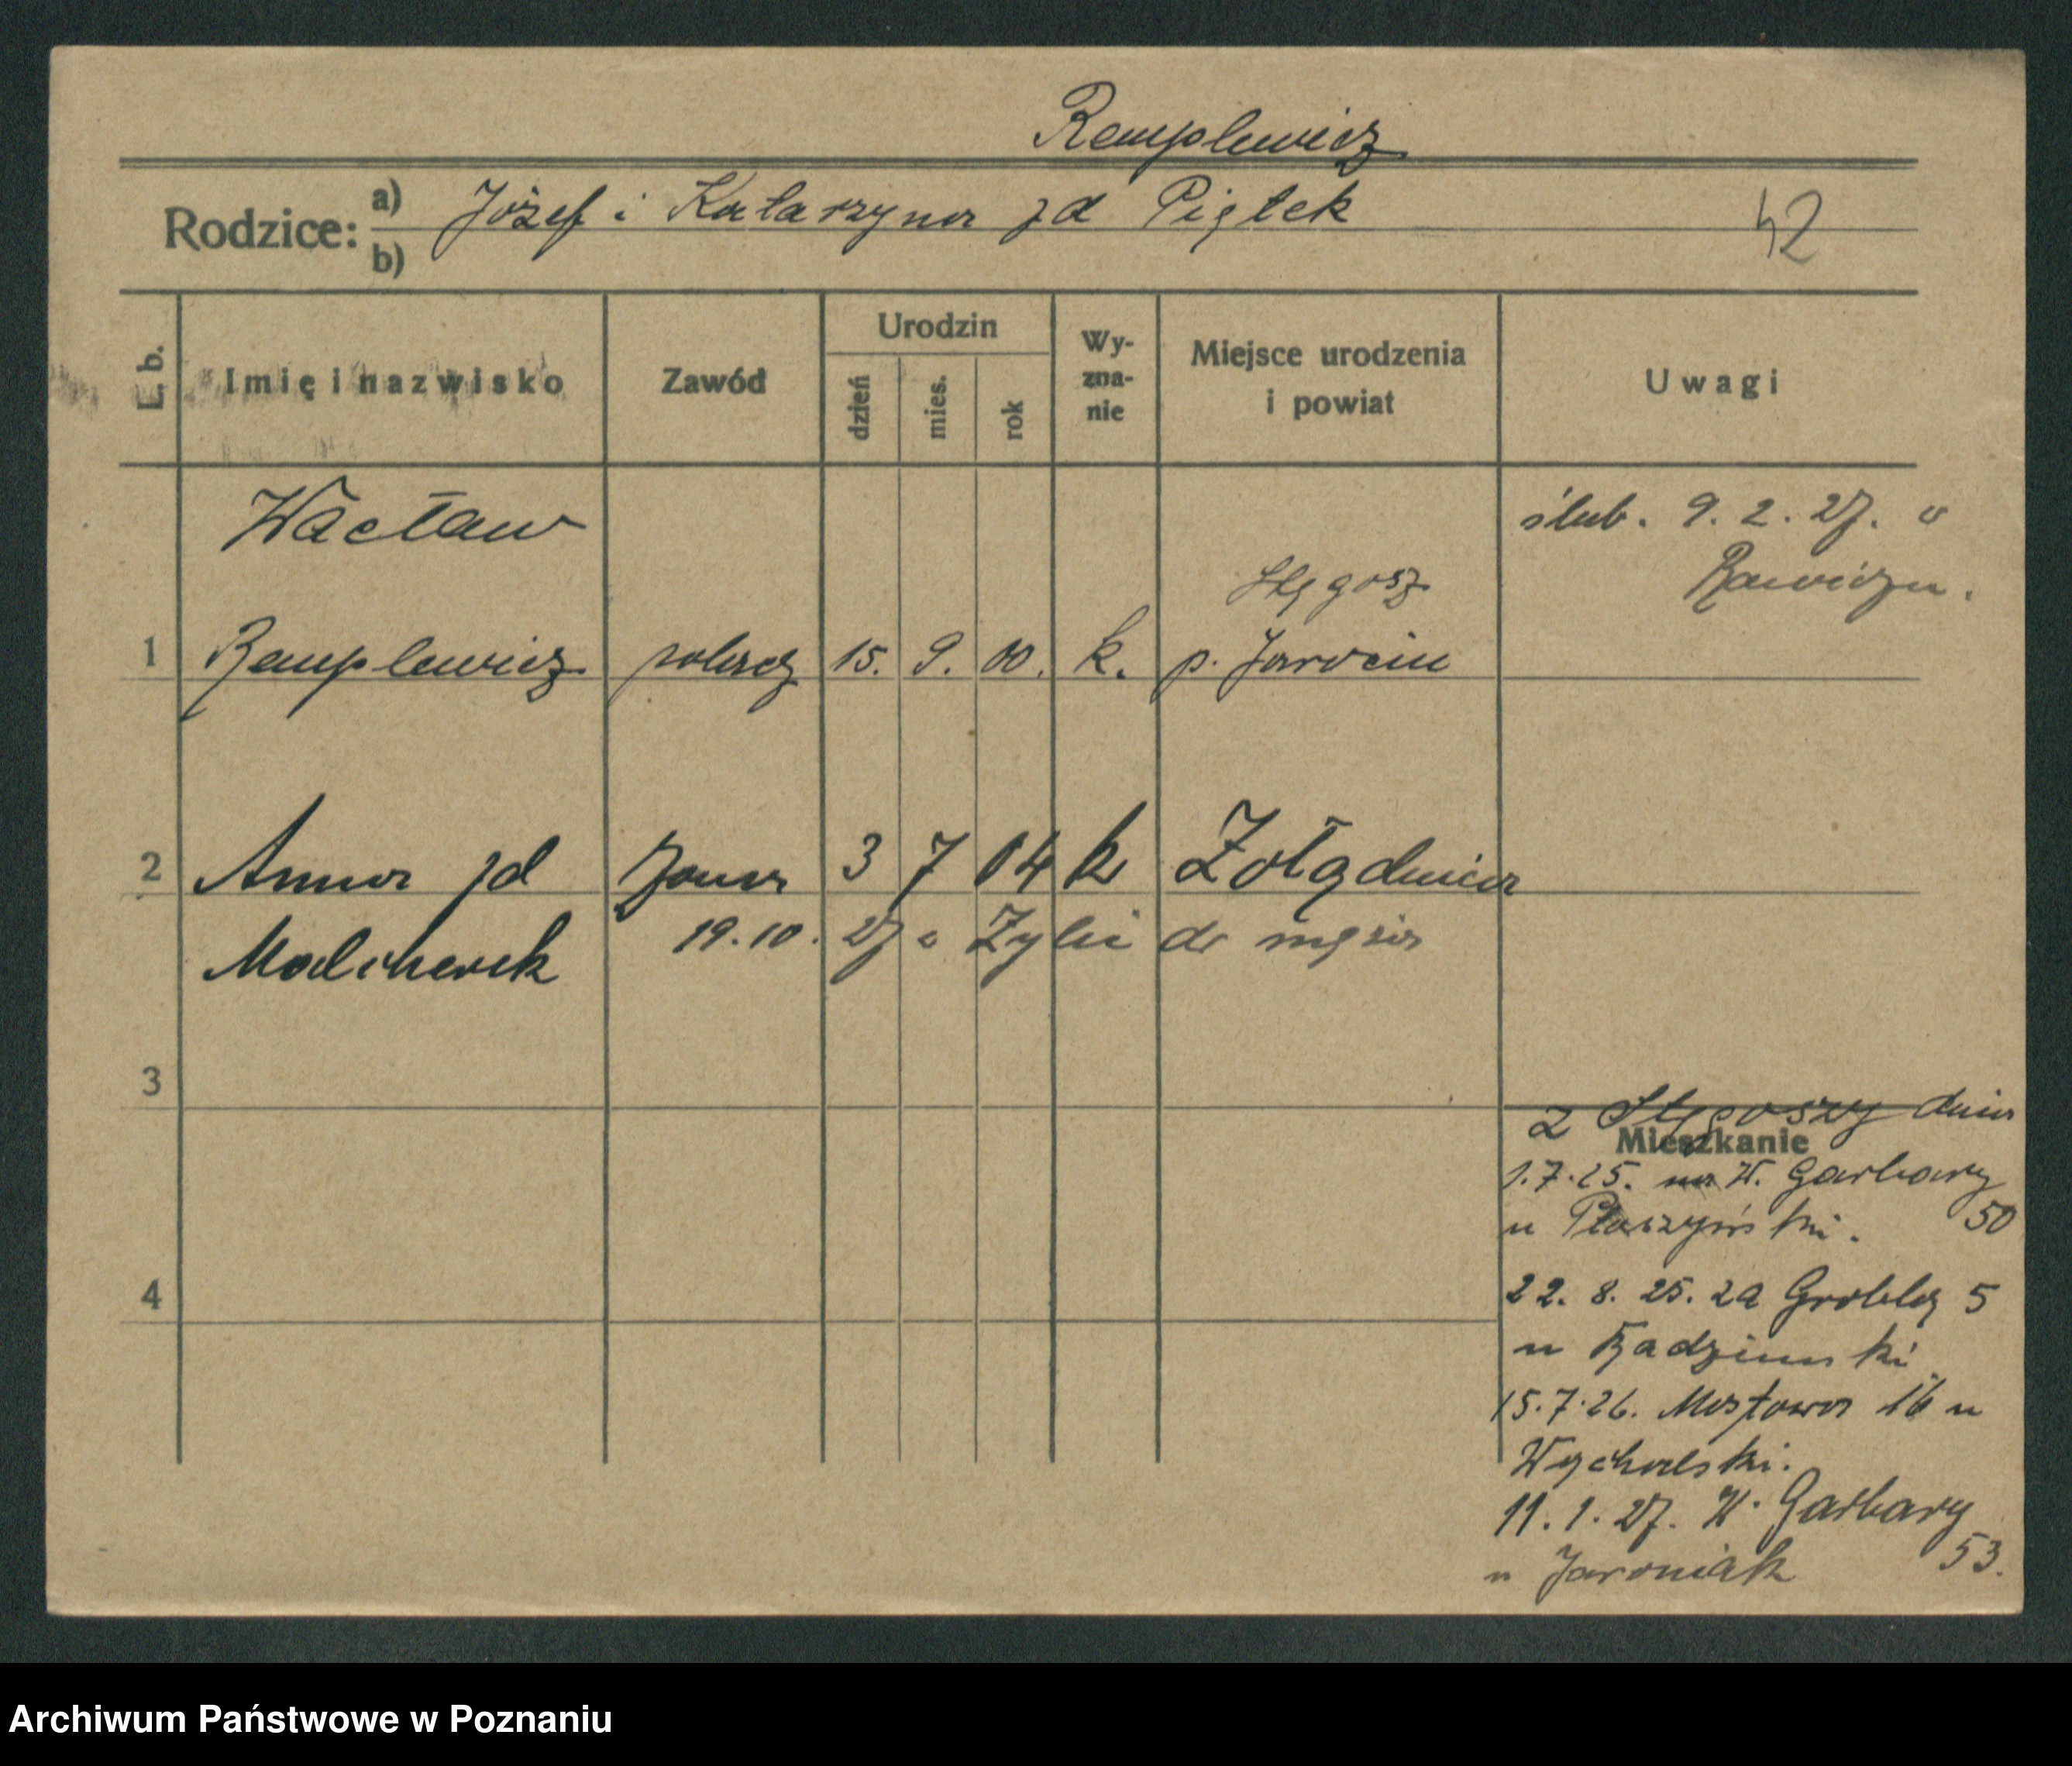 Remplewicz
Rodzice: a) Józef i Katarzyna zd Piątek
b)
42
L. b.
Imię i nazwisko
Zawód
Urodzin
dzień
mies.
rok
Wy-
zna-
nie
Miejsce urodzenia
i powiat
Uwagi
Wacław
ślub. 9. 2. 27. w
Rawiczu.
Stęgosz
1 Remplewicz 15. 9. 00. k. p. Jarocin
2 Anna zd żona 3 7 04 k Żołądnica
19.10. 27 z do męża
Malcherek
3
z Stęgoszy dnia
Mieszkanie
1.7.25. na W. Garbary
u Ptaszyński. 50
4
22. 8. 25. za Groblą 5
u Radzimski
15.7.26. Mostowa 16 u
Wychalski.
11. 1. 27. W. Garbary
u Jaroniak 53.
Archiwum Państwowe w Poznaniu